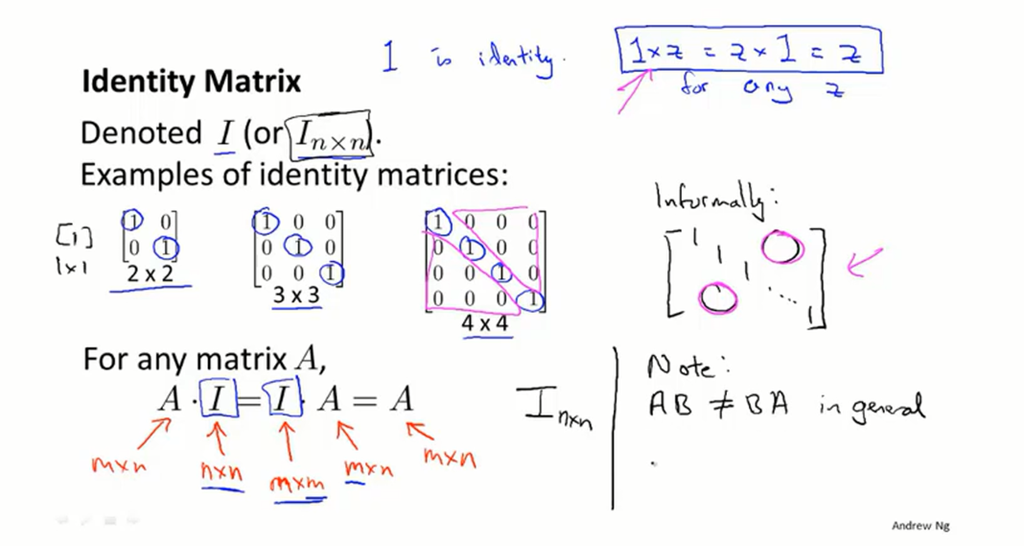 1 is identity.
1 × z = z × 1 = z
for any z
Identity Matrix
Denoted I (or I n×n).
Examples of identity matrices:
[1]
1×1
[1 0
0 1]
2 x 2
[1 0 0
0 1 0
0 0 1]
3 x 3
[1 0 0 0
0 1 0 0
0 0 1 0
0 0 0 1]
4 x 4
Informally:
[1
1 0
1
0 ...
1]
For any matrix A,
A · I = I · A = A
m×n n×n m×m m×n m×n
I n×n
Note:
AB ≠ BA in general
Andrew Ng